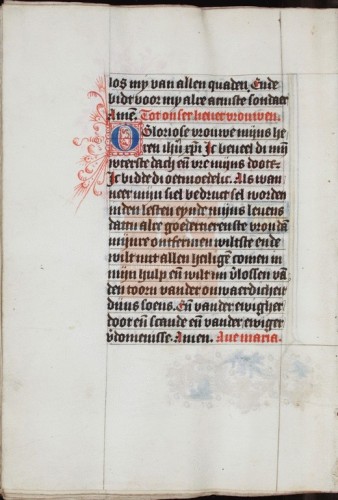 los my van allen quaden. Ende
bidt voor my alre armste sondaer
Amē. Tot onser liever vrouwen.
O Gloriose vrouwe mijns he
ren ihū xpī. Ic beveel di mijn
uterste dach eñ ure mijns doots.
Ic bidde di oemoedelic. Als wan
neer mijn siel bedruct sel worden
in den lesten eynde mijns levens
dattu alre goedertierenste vrou
mijnre ontfermen wilste ende
wilt mit allen heiligē comen in
mijn hulp eñ wilt mi vlossen vā
den toorn van der
dijns soens. Eñ van der ewigher
doot eñ scande eñ van der ewiger
vdomenisse. Amen. Ave maria.